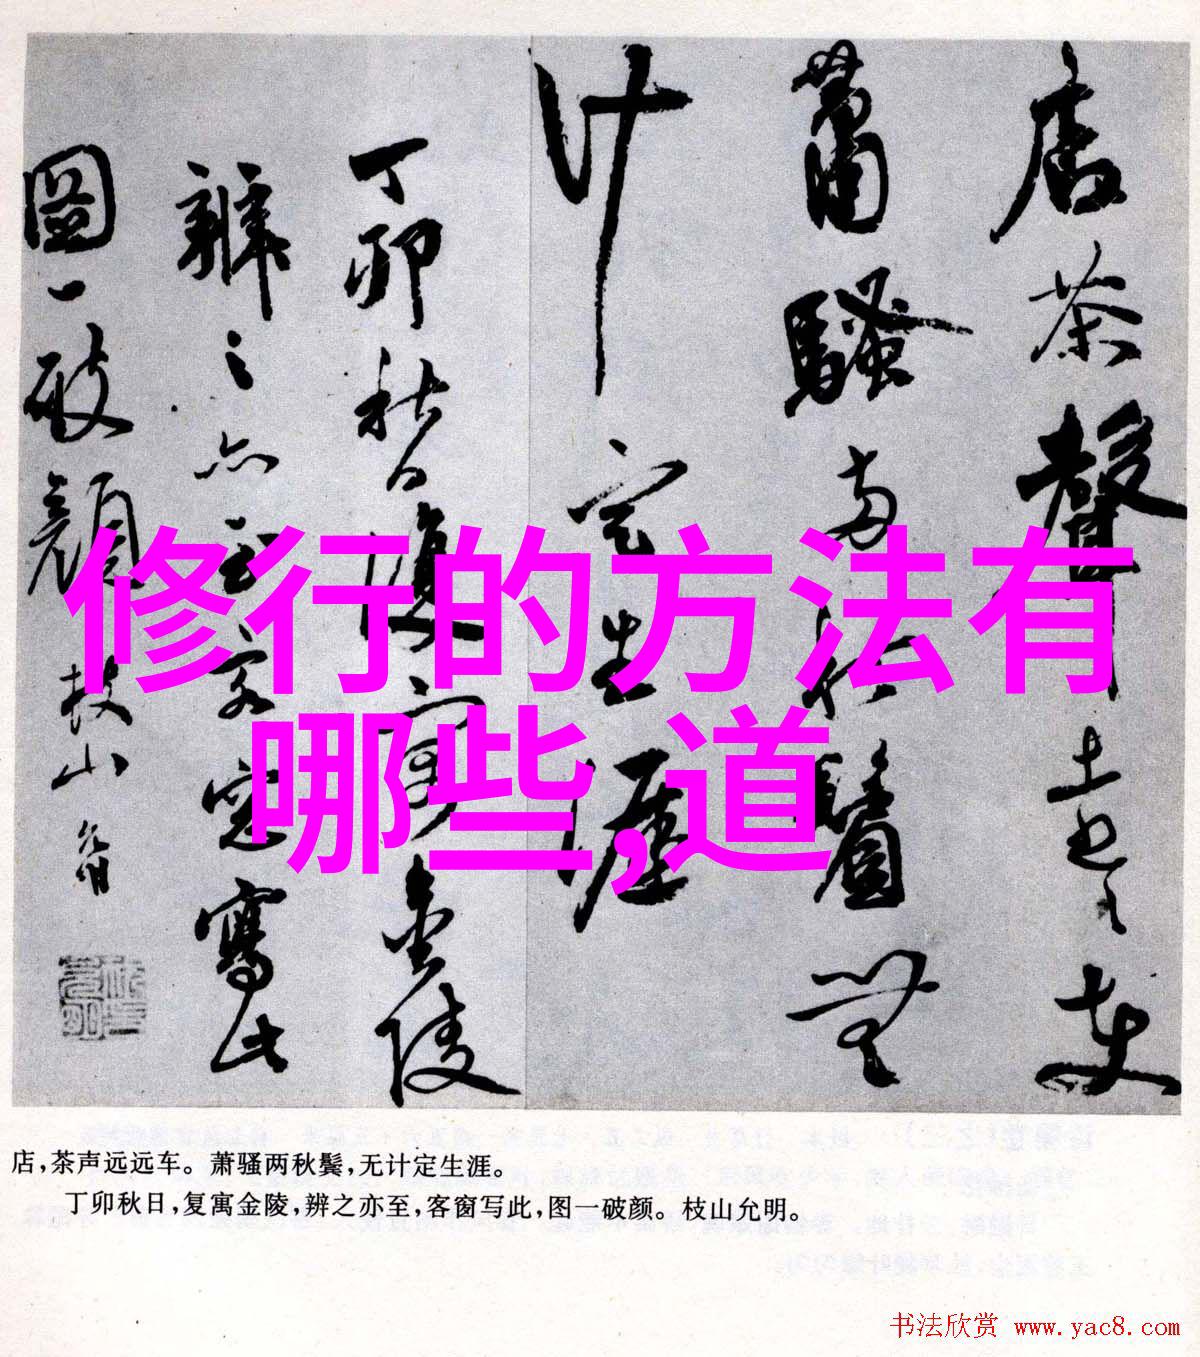 店茶聲遠〻車
蕭騷兩秋鬢無
计定生涯
丁卯秋日復寓金陵
辨之亦至客窓寫此
圖一破顏 枝山允明
修行的方法有
哪些,道
店,茶声远远车。萧骚两秋鬓,无计定生涯。
丁卯秋日,复寓金陵,辨之亦至,客窗写此,图一破颜。枝山允明。
书法欣赏 www.yac8.com